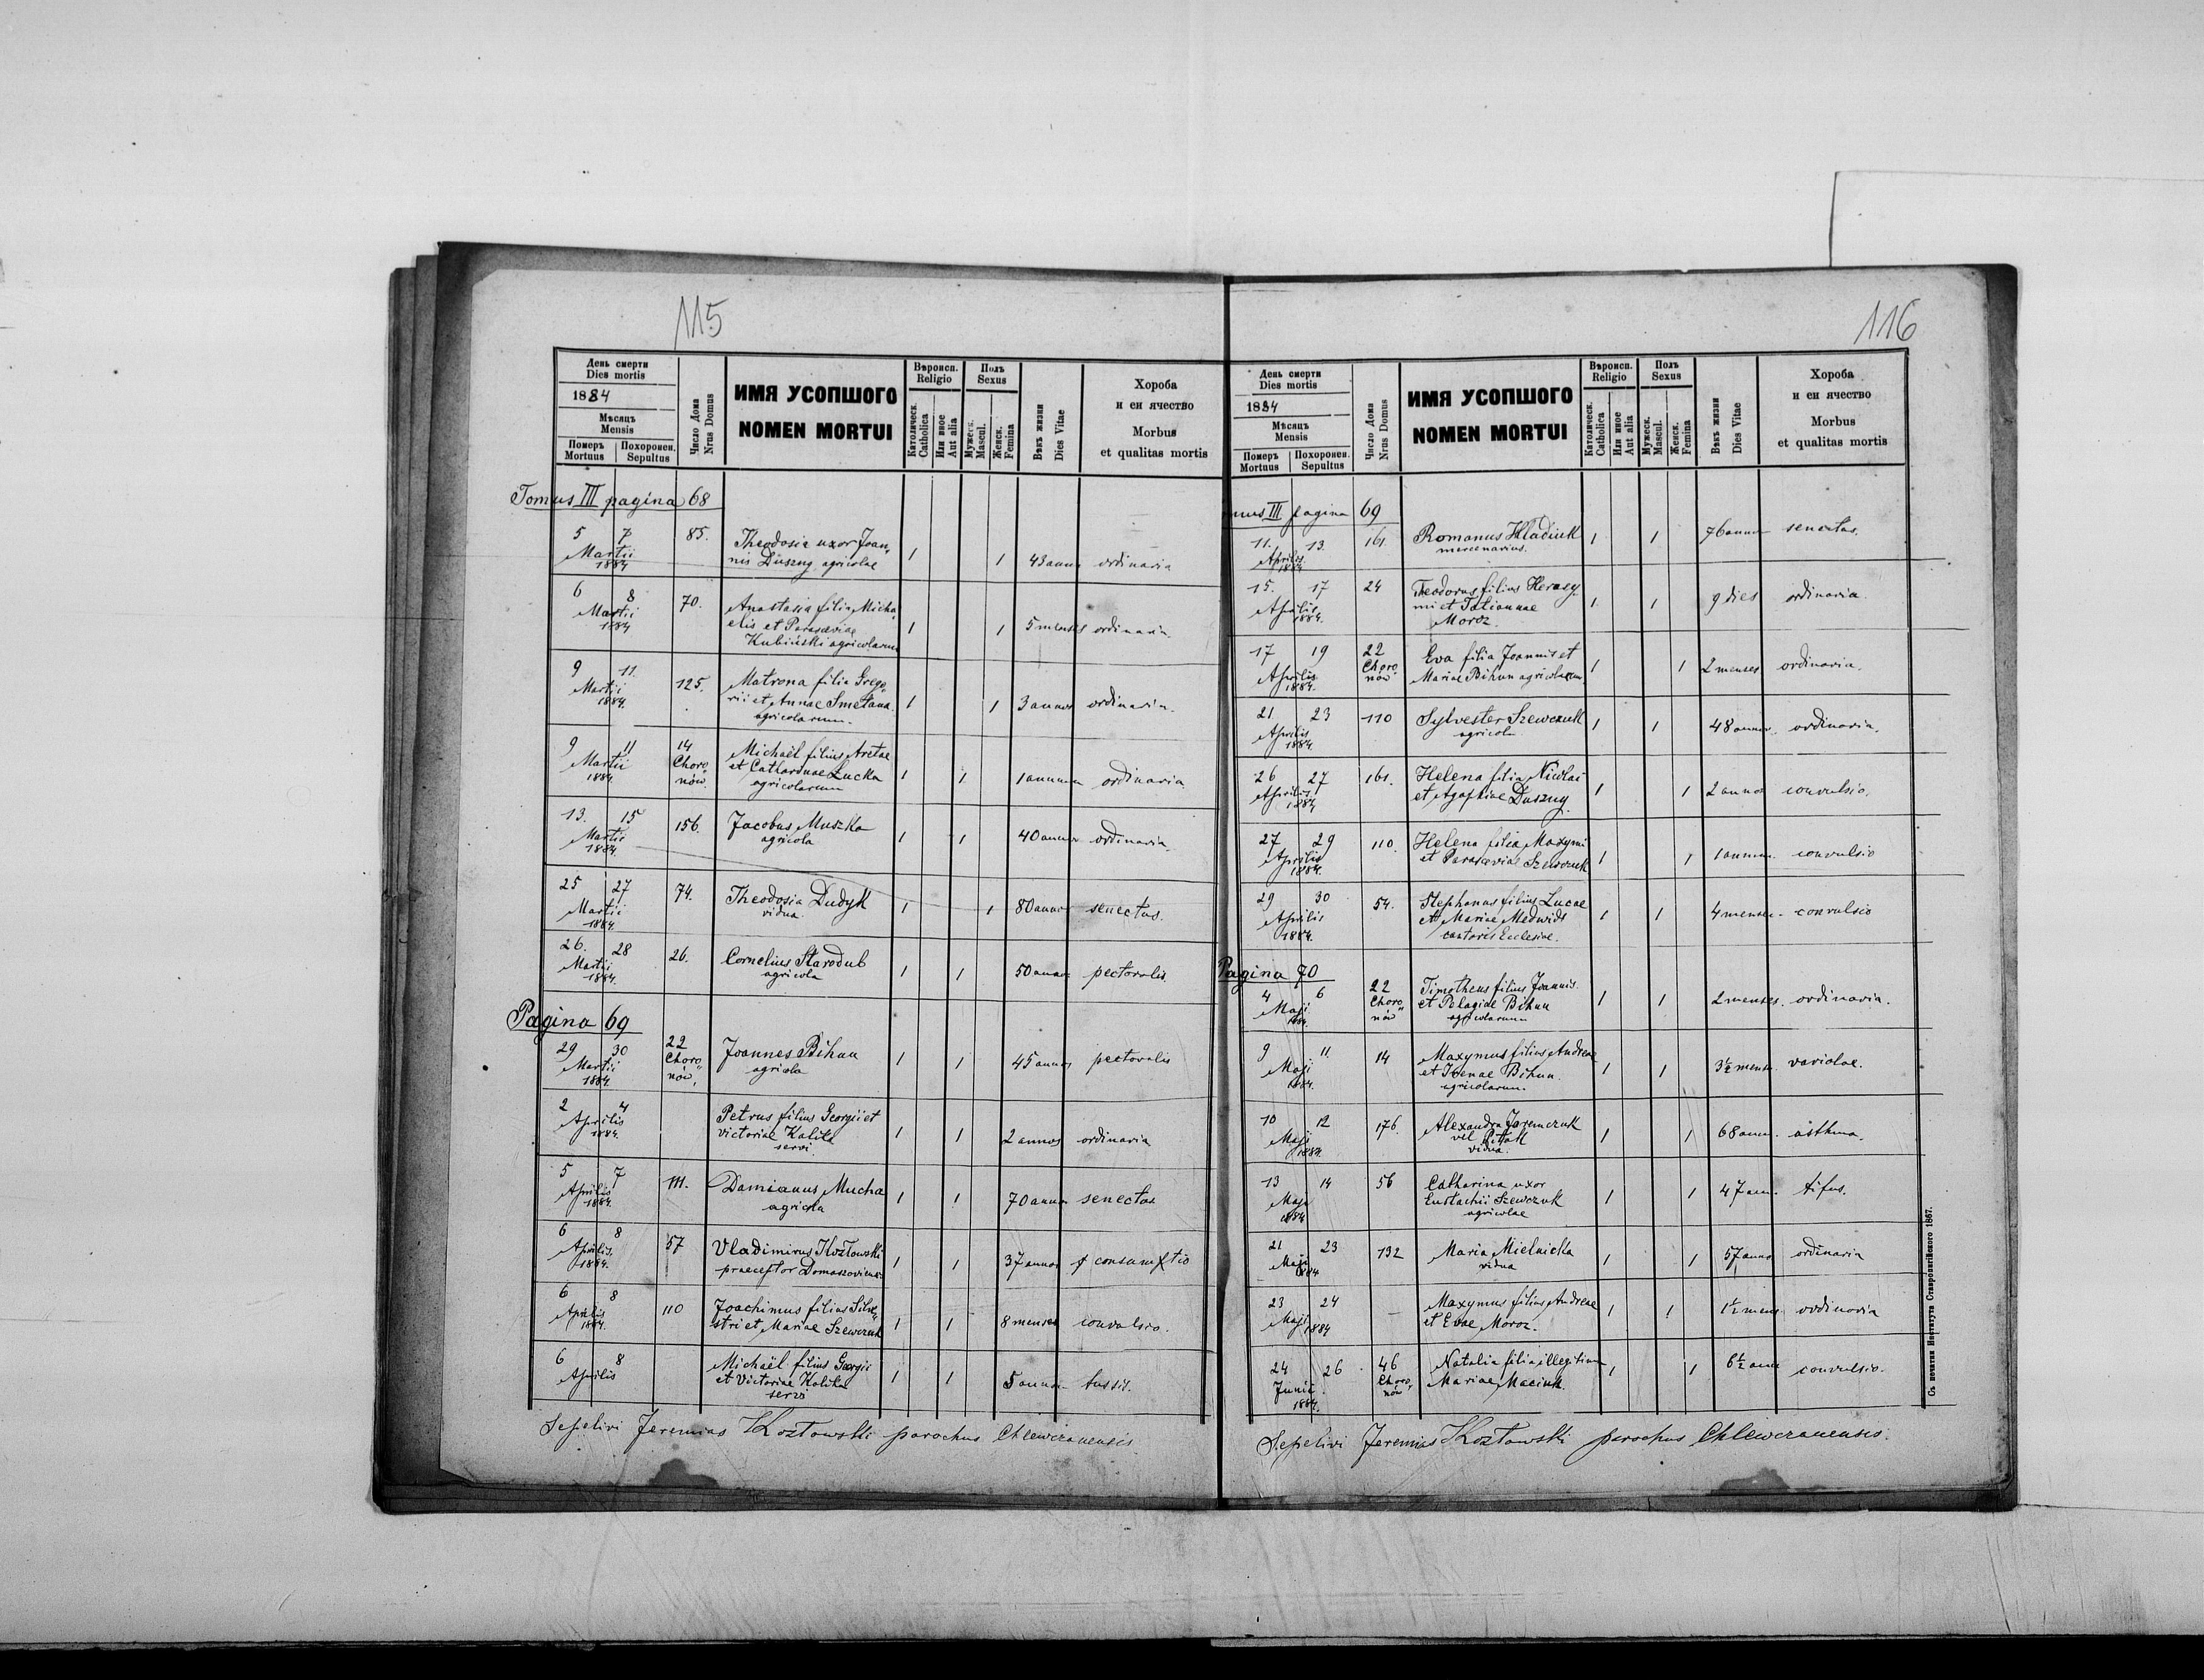 115
День смерти
Dies mortis
1884
Мѣсяцъ
Mensis
Померъ Mortuus
Похоронен. Sepultus
Число Дома
Nrus Domus
ИМЯ УСОПШОГО
NOMEN MORTUI
Вѣроисп.
Religio
Католическ.
Catholica
Или иное
Aut alia
Полъ
Sexus
Мужеск.
Mascul.
Женск.
Femina
Вѣкъ жизни
Dies Vitae
Хороба
и еи ячество
Morbus
et qualitas mortis
Tomus III pagina 68
5 7 85. Theodosia uxor Joan„
Martii 1884 nis Duszny agricolae 1 1 43 annos ordinaria
6 8 70. Anastasia filia Micha„
Martii 1884 elis et Parasceviae 1 1 5 menses ordinaria
Kubiński agricolarum
9 11. 125. Matrona filia Grego„
Martii 1884. rii et Annae Smetana 1 1 3 annos ordinaria.
agricolarum.
9 11 14 Michaël filius Aretae
Martii Choro„ et Catharinae Lucka 1 1 1 annum ordinaria
1884 nów. agricolarum
13. 15 156. Jacobus Muszka
Martii 1884. agricola 1 1 40 annos ordinaria.
25 27 74. Theodosia Dudyk
Martii 1884. vidua. 1 1 80 annos senectus.
26. 28 26. Cornelius Starodub
Martii 1884. agricola 1 1 50 annos pectoralis
Pagina 69
29 30 22 Joannes Bihun
Martii Choro„ agricola 1 1 45 annos pectoralis
1884 nów,
2 4 Petrus filius Georgii et
Aprilis victoriae Kalita 1 1 2 annos ordinaria
1884. servi
5 7 111. Damianus Mucha
Aprilis 1884. agricola 1 1 70 annos senectus
6 8 57 Vladimirus Kozłowski
Aprilis 1884. praeceptor Domaszoviens: 1 1 37 annos consumptio
6 8 110 Joachimus filius Silve„
Aprilis 1884. stri et Mariae Szewczuk 1 1 8 menses convulsio.
6 8 Michaël filius Georgii
Aprilis et Victoriae Kalita 1 1 5 annos tussis.
servi
Sepelivi Jeremias Kozłowski parochus Chlewczanensis.
116
День смерти
Dies mortis
1884
Мѣсяцъ
Mensis
Померъ Mortuus
Похоронен. Sepultus
Число Дома
Nrus Domus
ИМЯ УСОПШОГО
NOMEN MORTUI
Вѣроисп.
Religio
Католическ.
Catholica
Или иное
Aut alia
Полъ
Sexus
Мужеск.
Mascul.
Женск.
Femina
Вѣкъ жизни
Dies Vitae
Хороба
и еи ячество
Morbus
et qualitas mortis
mus III pagina 69
11. 13. 161. Romanus Hladiuk 1 1 76 annos senectus.
Aprilis 1884 mercenarius.
15. 17 24 Teodorus filius Herasy
Aprilis mi et Tatiannae 1 1 9 dies ordinaria.
1884. Moroz
17 19 22 Eva filia Joannis et
Aprilis Choro„ Mariae Bihun agricolarum 1 1 2 menses ordinaria.
1884. nów
21. 23 110 Sylvester Szewczuk
Aprilis 1884 agricola 1 1 48 annos ordinaria.
26 27 161. Helena filia Nicolai
Aprilis 1884 et Agaphiae Duszny 1 1 2 annos convulsio.
27 29 110. Helena filia Maxymi
Aprilis 1884. et Parasceviae Szewczuk 1 1 1 annum convulsio
29 30 54. Stephanus filius Lucae
Aprilis et Mariae Medwids 1 1 4 menses convulsio
1884. cantoris Ecclesiae.
Pagina 70
4 6 22 Timotheus filius Joannis
Maji Choro„ et Pelagiae Bihun 1 1 2 menses. ordinaria.
1884. nów agricolarum
9 11. 14 Maxymus filius Andreae
Maji et Irenae Bihun. 1 1 3½ mens. variolae.
1884. agricolarum.
10 12 176. Alexandra Jaremczuk
Maji vel Pittak 1 1 68 ann. asthma.
1884. vidua.
13 14 56 Catharina uxor
Maji Eustachii Szewczuk 1 1 47 ann. tifus.
1884 agricolae
21 23 132 Maria Mielnicka
Maji 1884 vidua 1 1 57 anno ordinaria
23 24 — Maxymus filius Andreae
Maji 1884 et Evae Moroz. 1 1 1½ mens ordinaria
24 26 46 Natalia filia illegitima
Junii Choro„ Mariae Maciuk. 1 1 6½ ann convulsio.
1884. nów
Sepelivi Jeremias Kozłowski parochus Chlewczanensis.
Съ печатни Института Ставропигійского 1867.